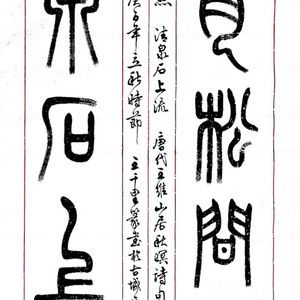 月松間
清泉石上流 唐代王維山居秋暝詩句
年立秋時節 王千里篆書於古城
泉石上